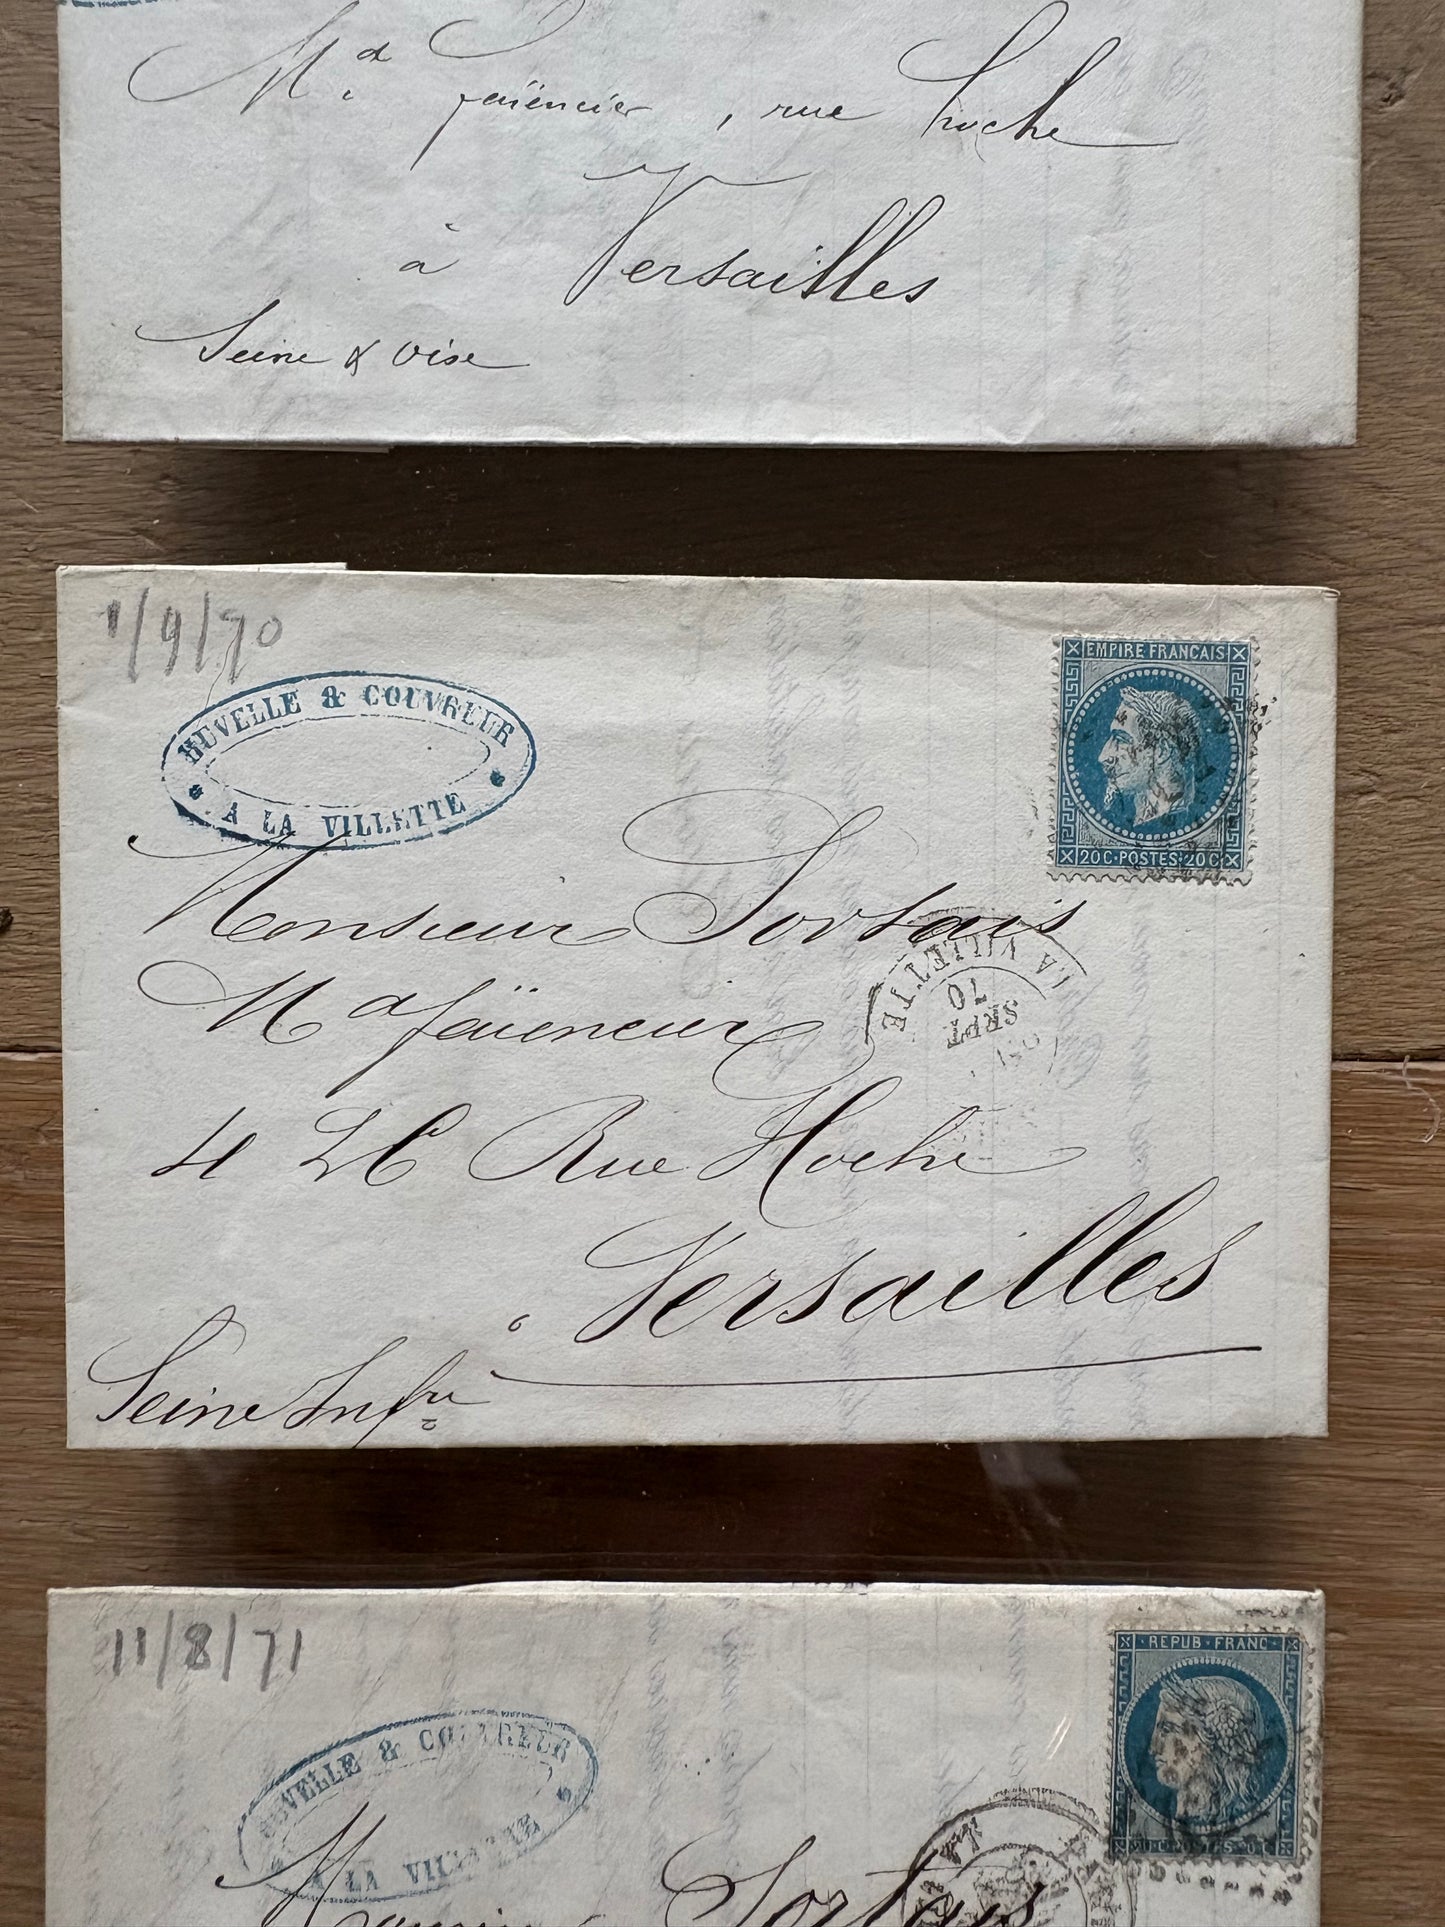 Md faïencier, rue Hoche
à Versailles
Seine & Oise
1/9/70
HUVELLE & COUVREUR
* A LA VILLETTE *
EMPIRE FRANCAIS
20 C · POSTES · 20 C
Monsieur Sortais
Md faïencier
LA VILLETTE
SEPT
70
4 Rue Hoche
à Versailles
Seine Infre
11/8/71
HUVELLE & COUVREUR
A LA VILLETTE
REPUB · FRANC
Sortais